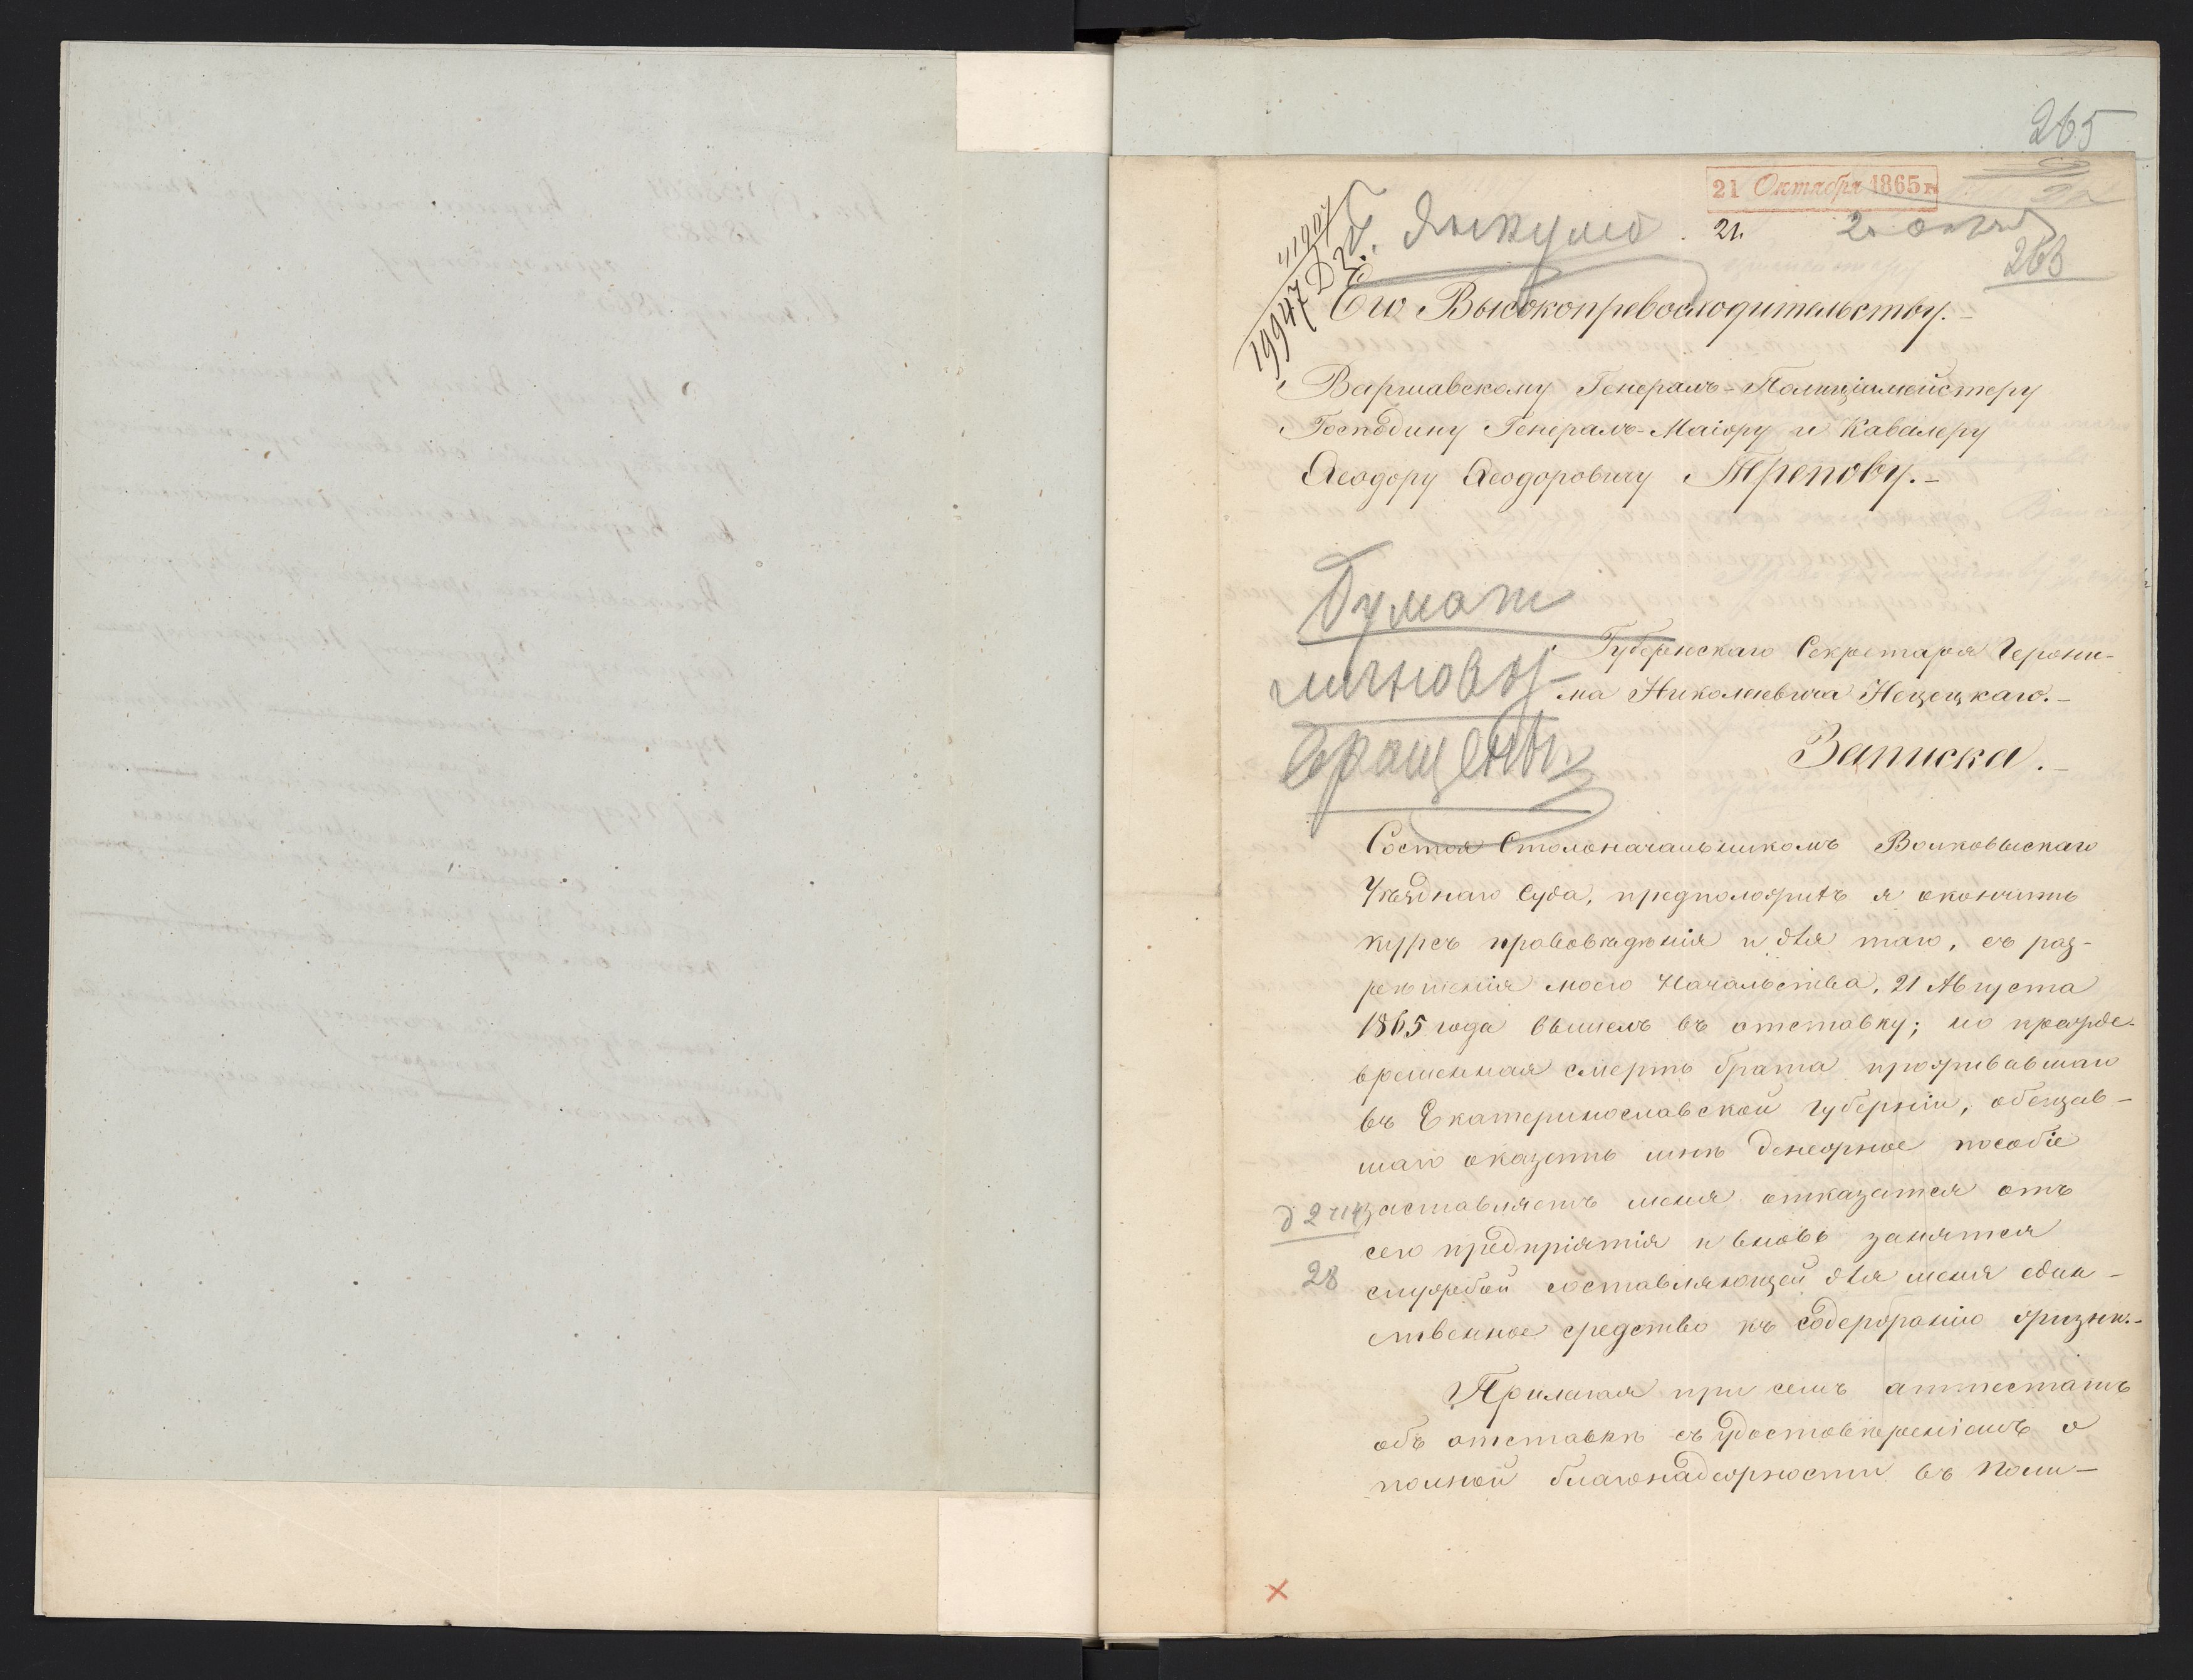 265
21 Октября 1865 г
21.
268
19947
Его Высокопревосходительству.-
Варшавскому Генералъ-Полиціймейстеру
Господину Генералъ-Маіору и Кавалеру
Ѳеодору Ѳеодоровичу Трепову.-
Бумаги
лично воз-
вращены
Губернскаго Секретаря Герони-
ма Николаевича Нецецкаго.-
Записка.-
Состоя Столоначальникомъ Волковыскаго
Уѣзднаго Суда, предположилъ я окончить
курсъ правовѣденія и для таго, съ раз-
рѣшенія моего Начальства, 21 Августа
1865 года вышелъ въ отставку; но прежде-
временная смерть брата проживавшаго
въ Екатеринославской губерніи, обещав-
шаго оказать мнѣ денежное пособіе
заставляетъ меня отказатся отъ
сего предпріятія и вновь занятся
службой составляющей для меня един-
ственное средство къ содержанію жизни.-
28
Прилагая при семъ аттестатъ
объ отставкѣ съ удостовѣреніемъ о
полной благонадежности въ поли-